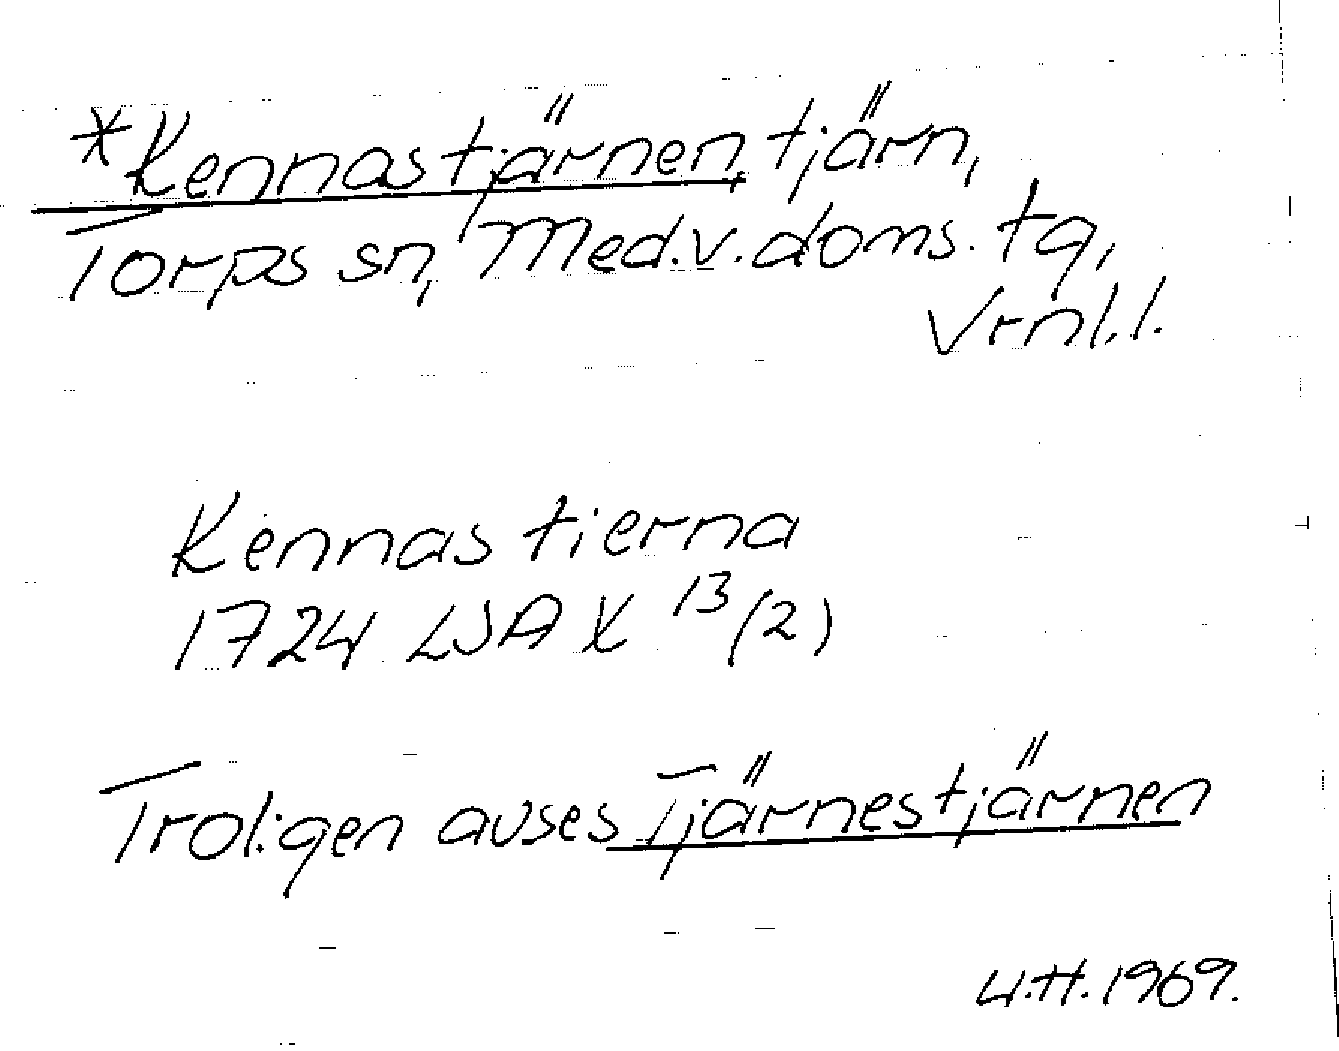 *Kennastjärnen, tjärn,
Torps sn, Med.v.doms. tg,
Vrnl.l.
Kennas tierna
1724 LSA X 13/(2)
Troligen avses Tjärnestjärnen
U.H. 1969.